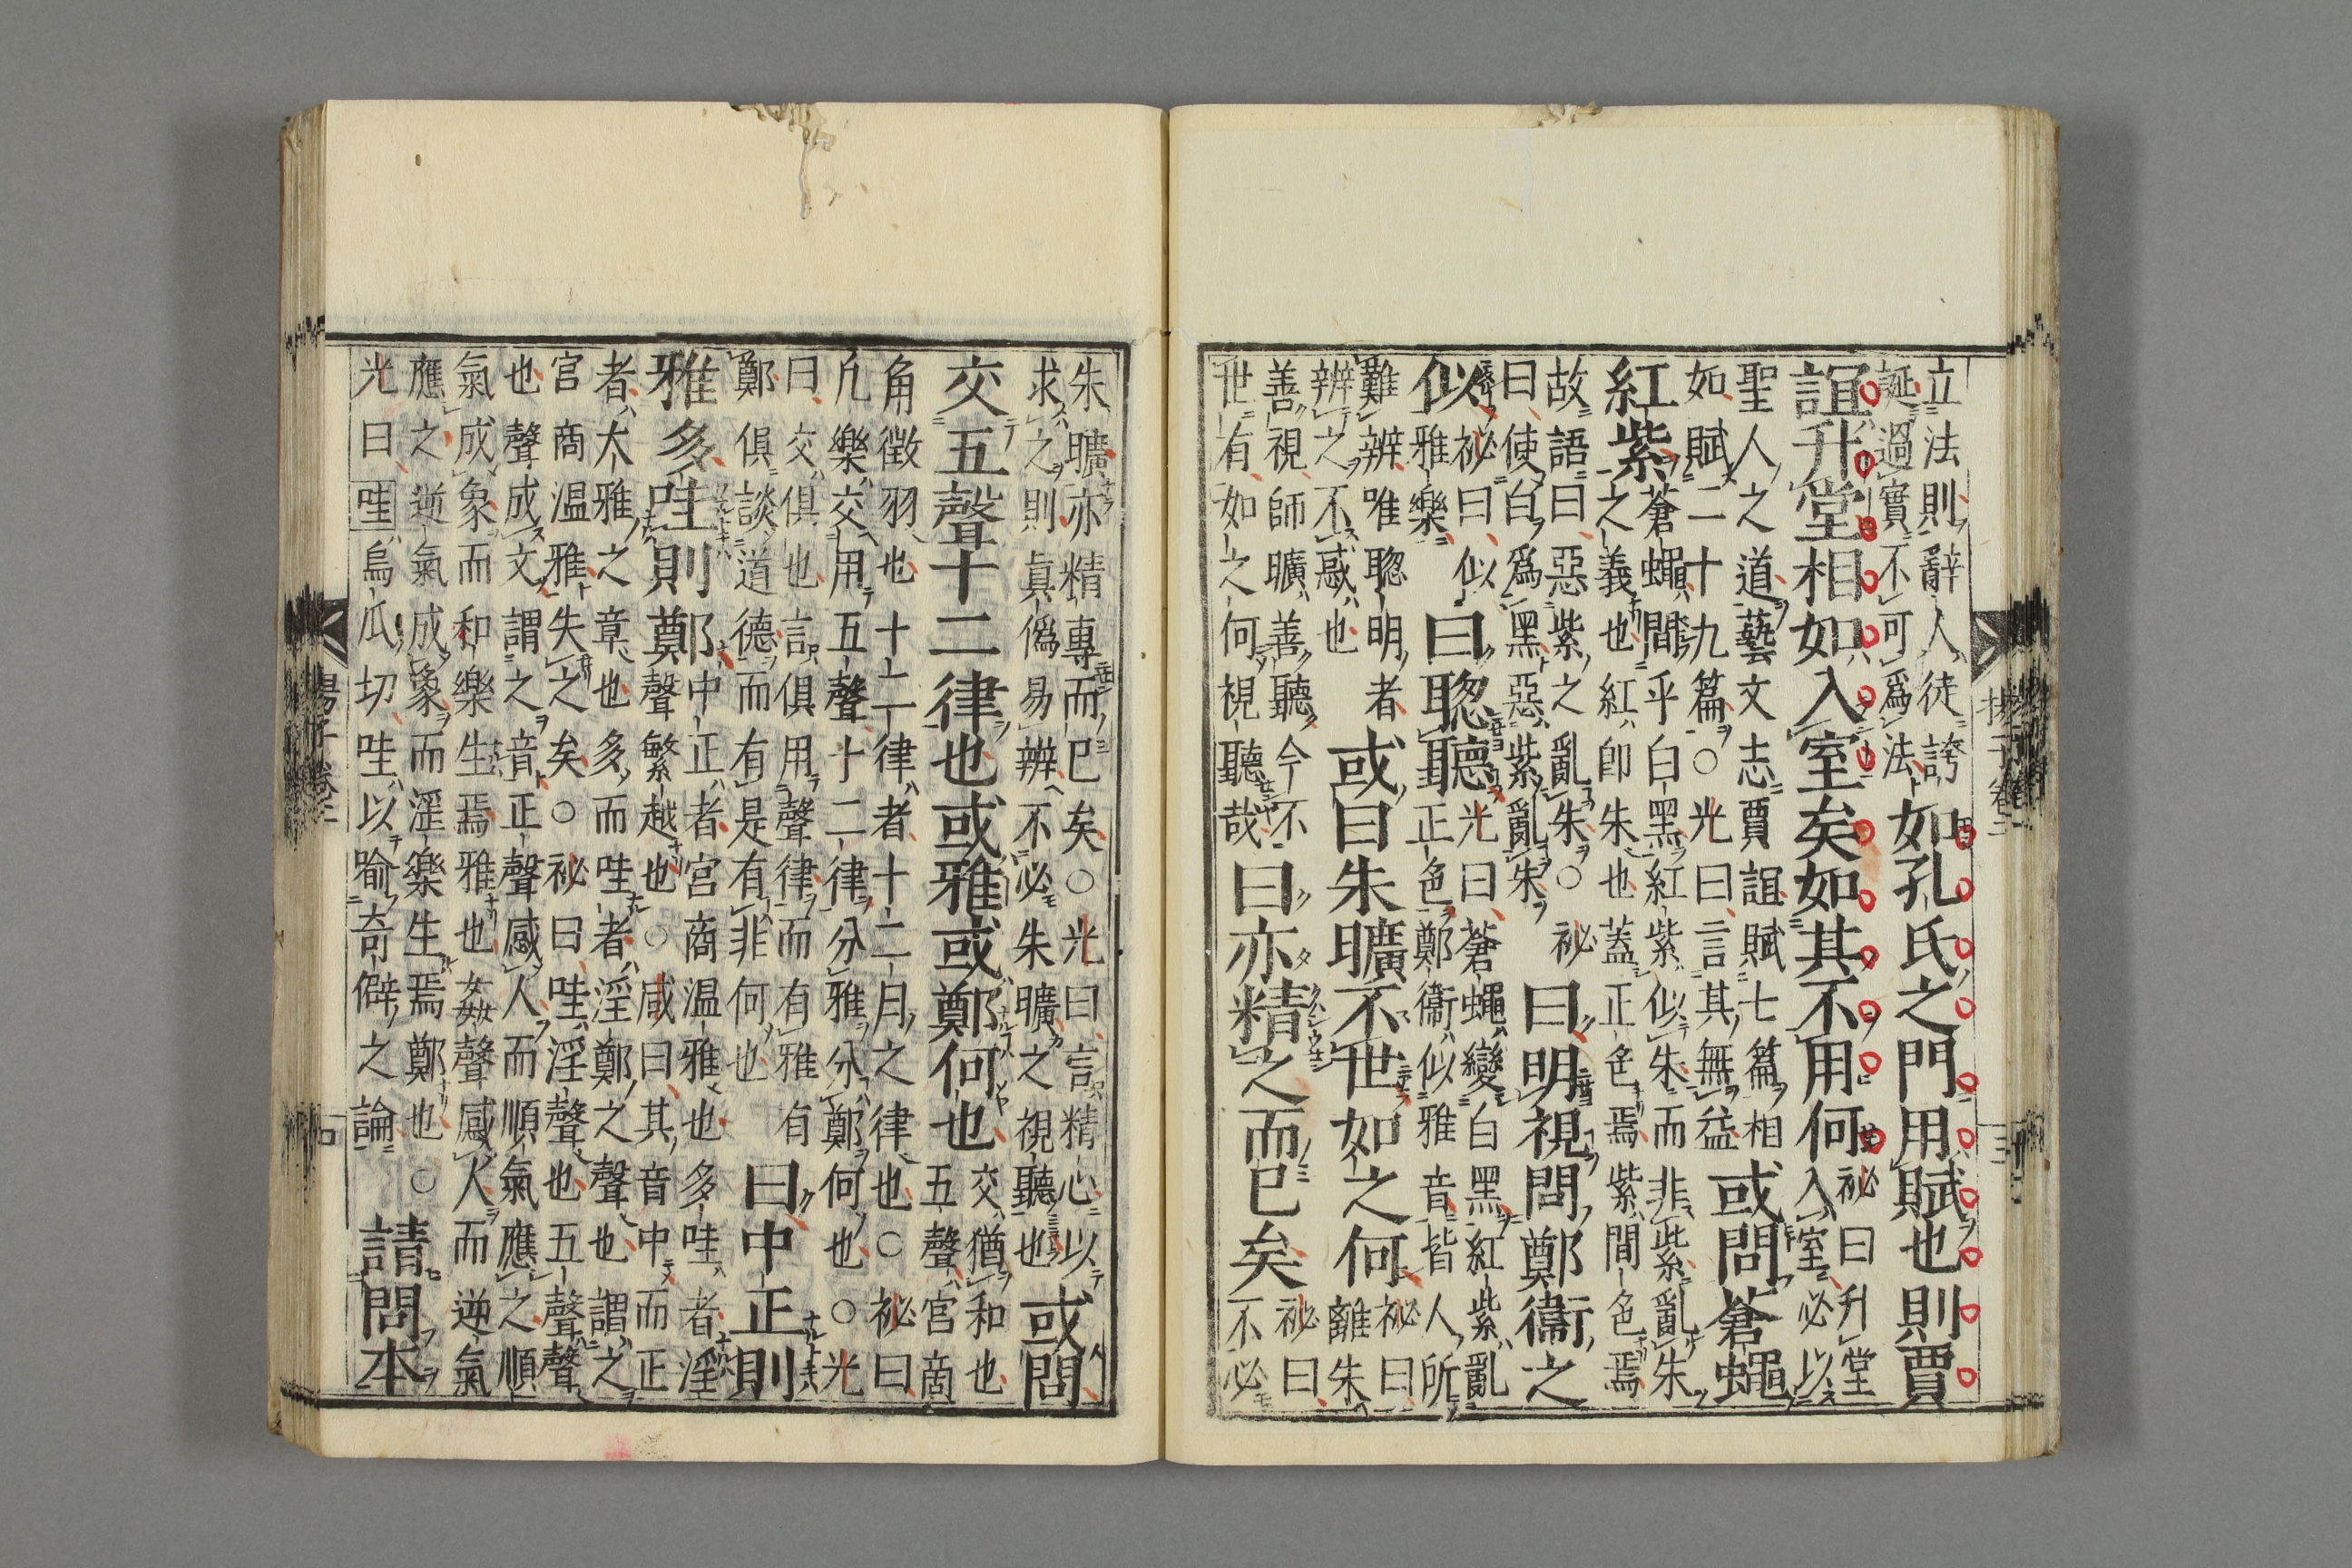 立法則辭人徒誇
誕過實不可爲法
如孔氏之門用賦也則賈
誼升堂相如入室矣如其不用何
祕曰升堂
入室必以
聖人之道藝文志賈誼賦七篇相
如賦二十九篇○光曰言其無益
或問蒼蠅
紅紫
蒼蠅間乎白黑紅紫似朱而非紫亂朱
之義也紅卽朱也蓋正色焉紫間色焉
故語曰惡紫之亂朱○祕
曰使白爲黑惡紫亂朱
曰明視問鄭衞之
似
祕曰似
雅樂
曰聦聽
光曰蒼蠅變白黑紅紫亂
正色鄭衞似雅音皆人所
難辨唯聦明者
辨之不惑也
或曰朱曠不世如之何
祕曰
離朱
善視師曠善聽今不
世有如之何視聽哉
曰亦精之而已矣
祕曰
不必
朱曠亦精專而已矣○光曰言精心以
求之則眞僞易辨不必朱曠之視聽也
或問
交五聲十二律也或雅或鄭何也
交猶和也
五聲宮商
角徵羽也十二律者十二月之律也○祕曰
凢樂交用五聲十二律分雅分鄭何也○光
曰交俱也言俱用聲律而有雅有
鄭俱談道德而有是有非何也
曰中正則
雅多哇則鄭
中正者宮商温雅也多哇者淫
聲繁越也○咸曰其音中而正
者大雅之章也多而哇者淫鄭之聲也謂之
宮商温雅失之矣○祕曰哇淫聲也五聲聲
也聲成文謂之音正聲感人而順氣應之順
氣成象而和樂生焉雅也姦聲感人而逆氣
應之逆氣成象而淫樂生焉鄭也○
光曰哇烏瓜切哇以喻奇僻之論
請問本